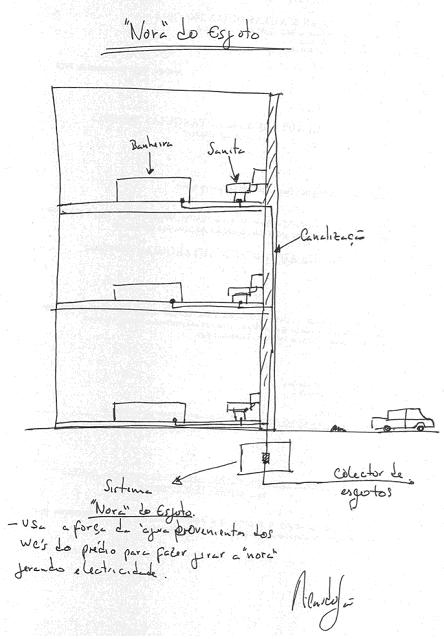 "Nora" do Esgoto
Banheira
Sanita
Canalização
Colector de
esgotos
Sistema
"Nora" do Esgoto.
- Usa a força da água proveniente dos
WC's do prédio para fazer girar a "nora"
gerando electricidade.